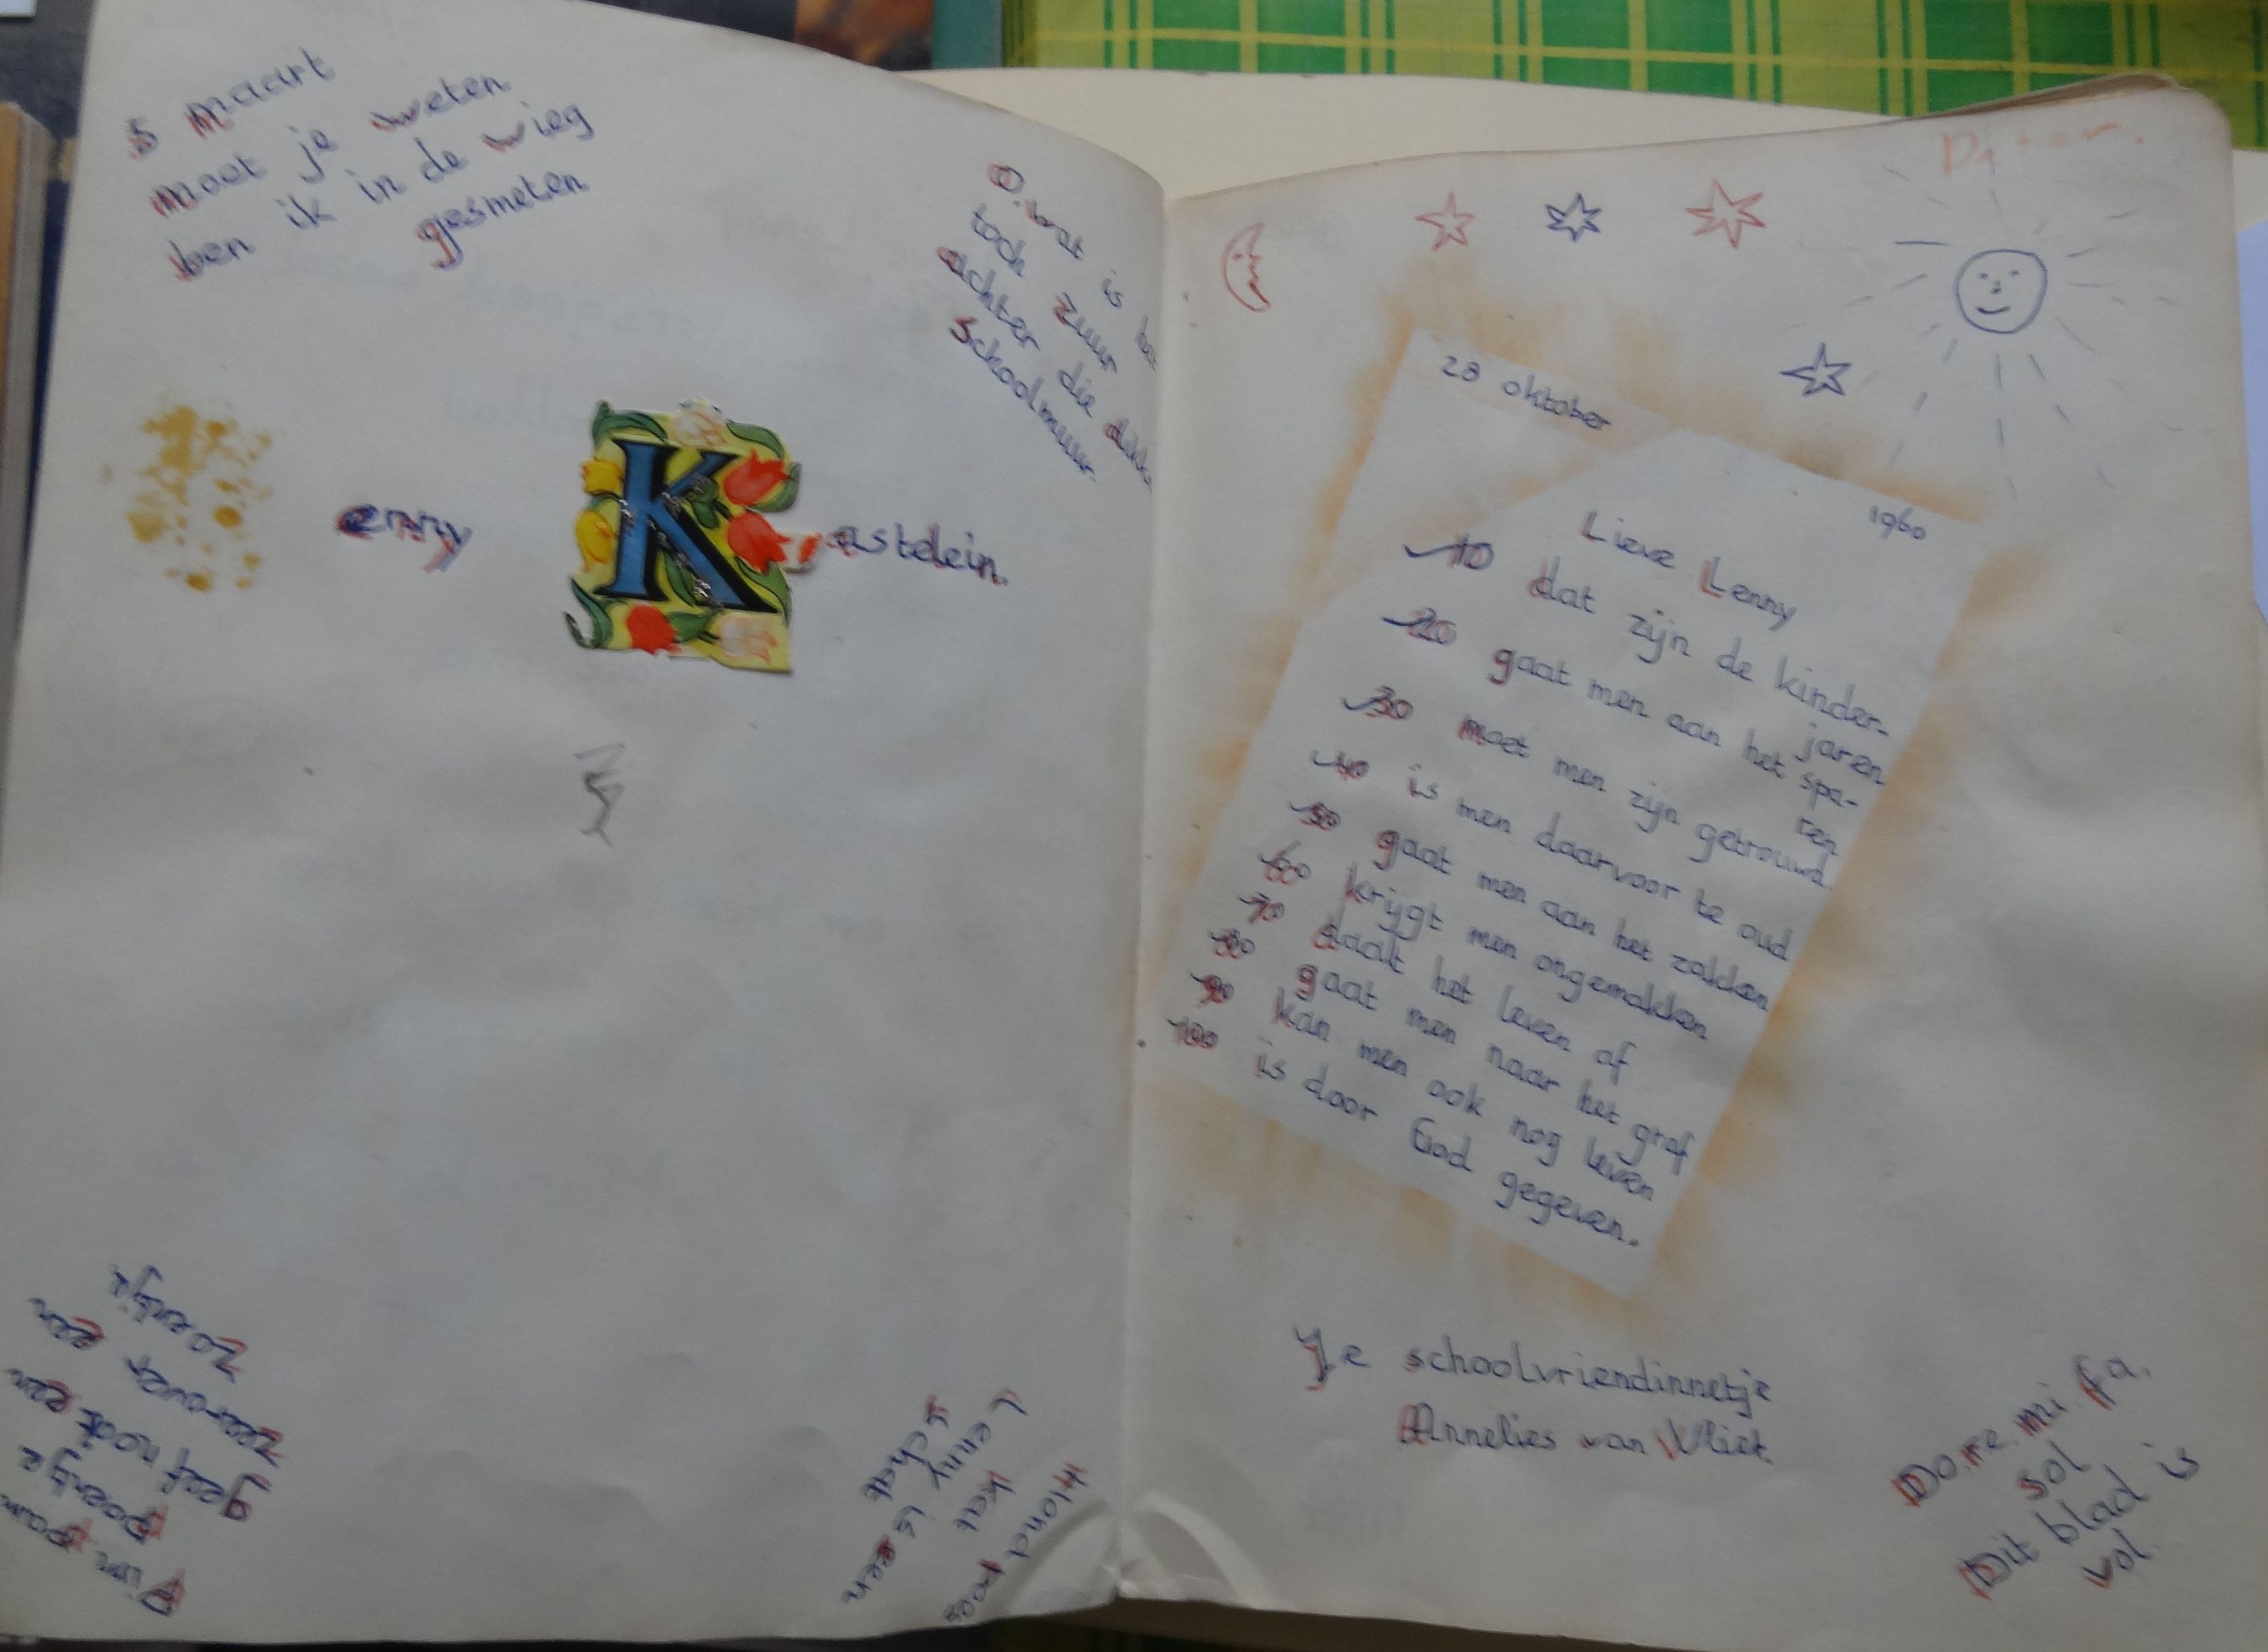 5 Maart
moet je weten
ben ik in de wieg
gesmeten
O, wat is
toch zuur
achter die
Schoolmuur.
enny K astelein.
Pim pam
poentje
geef nooit een
zeerover een
zoentje
Hond poes
kat
Lenny is een
schat
28 oktober
1960
Lieve Lenny
10 dat zijn de kinder-
jaren
20 gaat men aan het spa-
ren
30 moet men zijn getrouwd
40 is men daarvoor te oud
50 gaat men aan het zakken
60 krijgt men ongemakken
70 daalt het leven af
80 gaat men naar het graf
90 kan men ook nog leven
100 is door God gegeven.
Je schoolvriendinnetje
Annelies van Vliet.
Do. re. mi. fa.
sol
Dit blad is
vol.